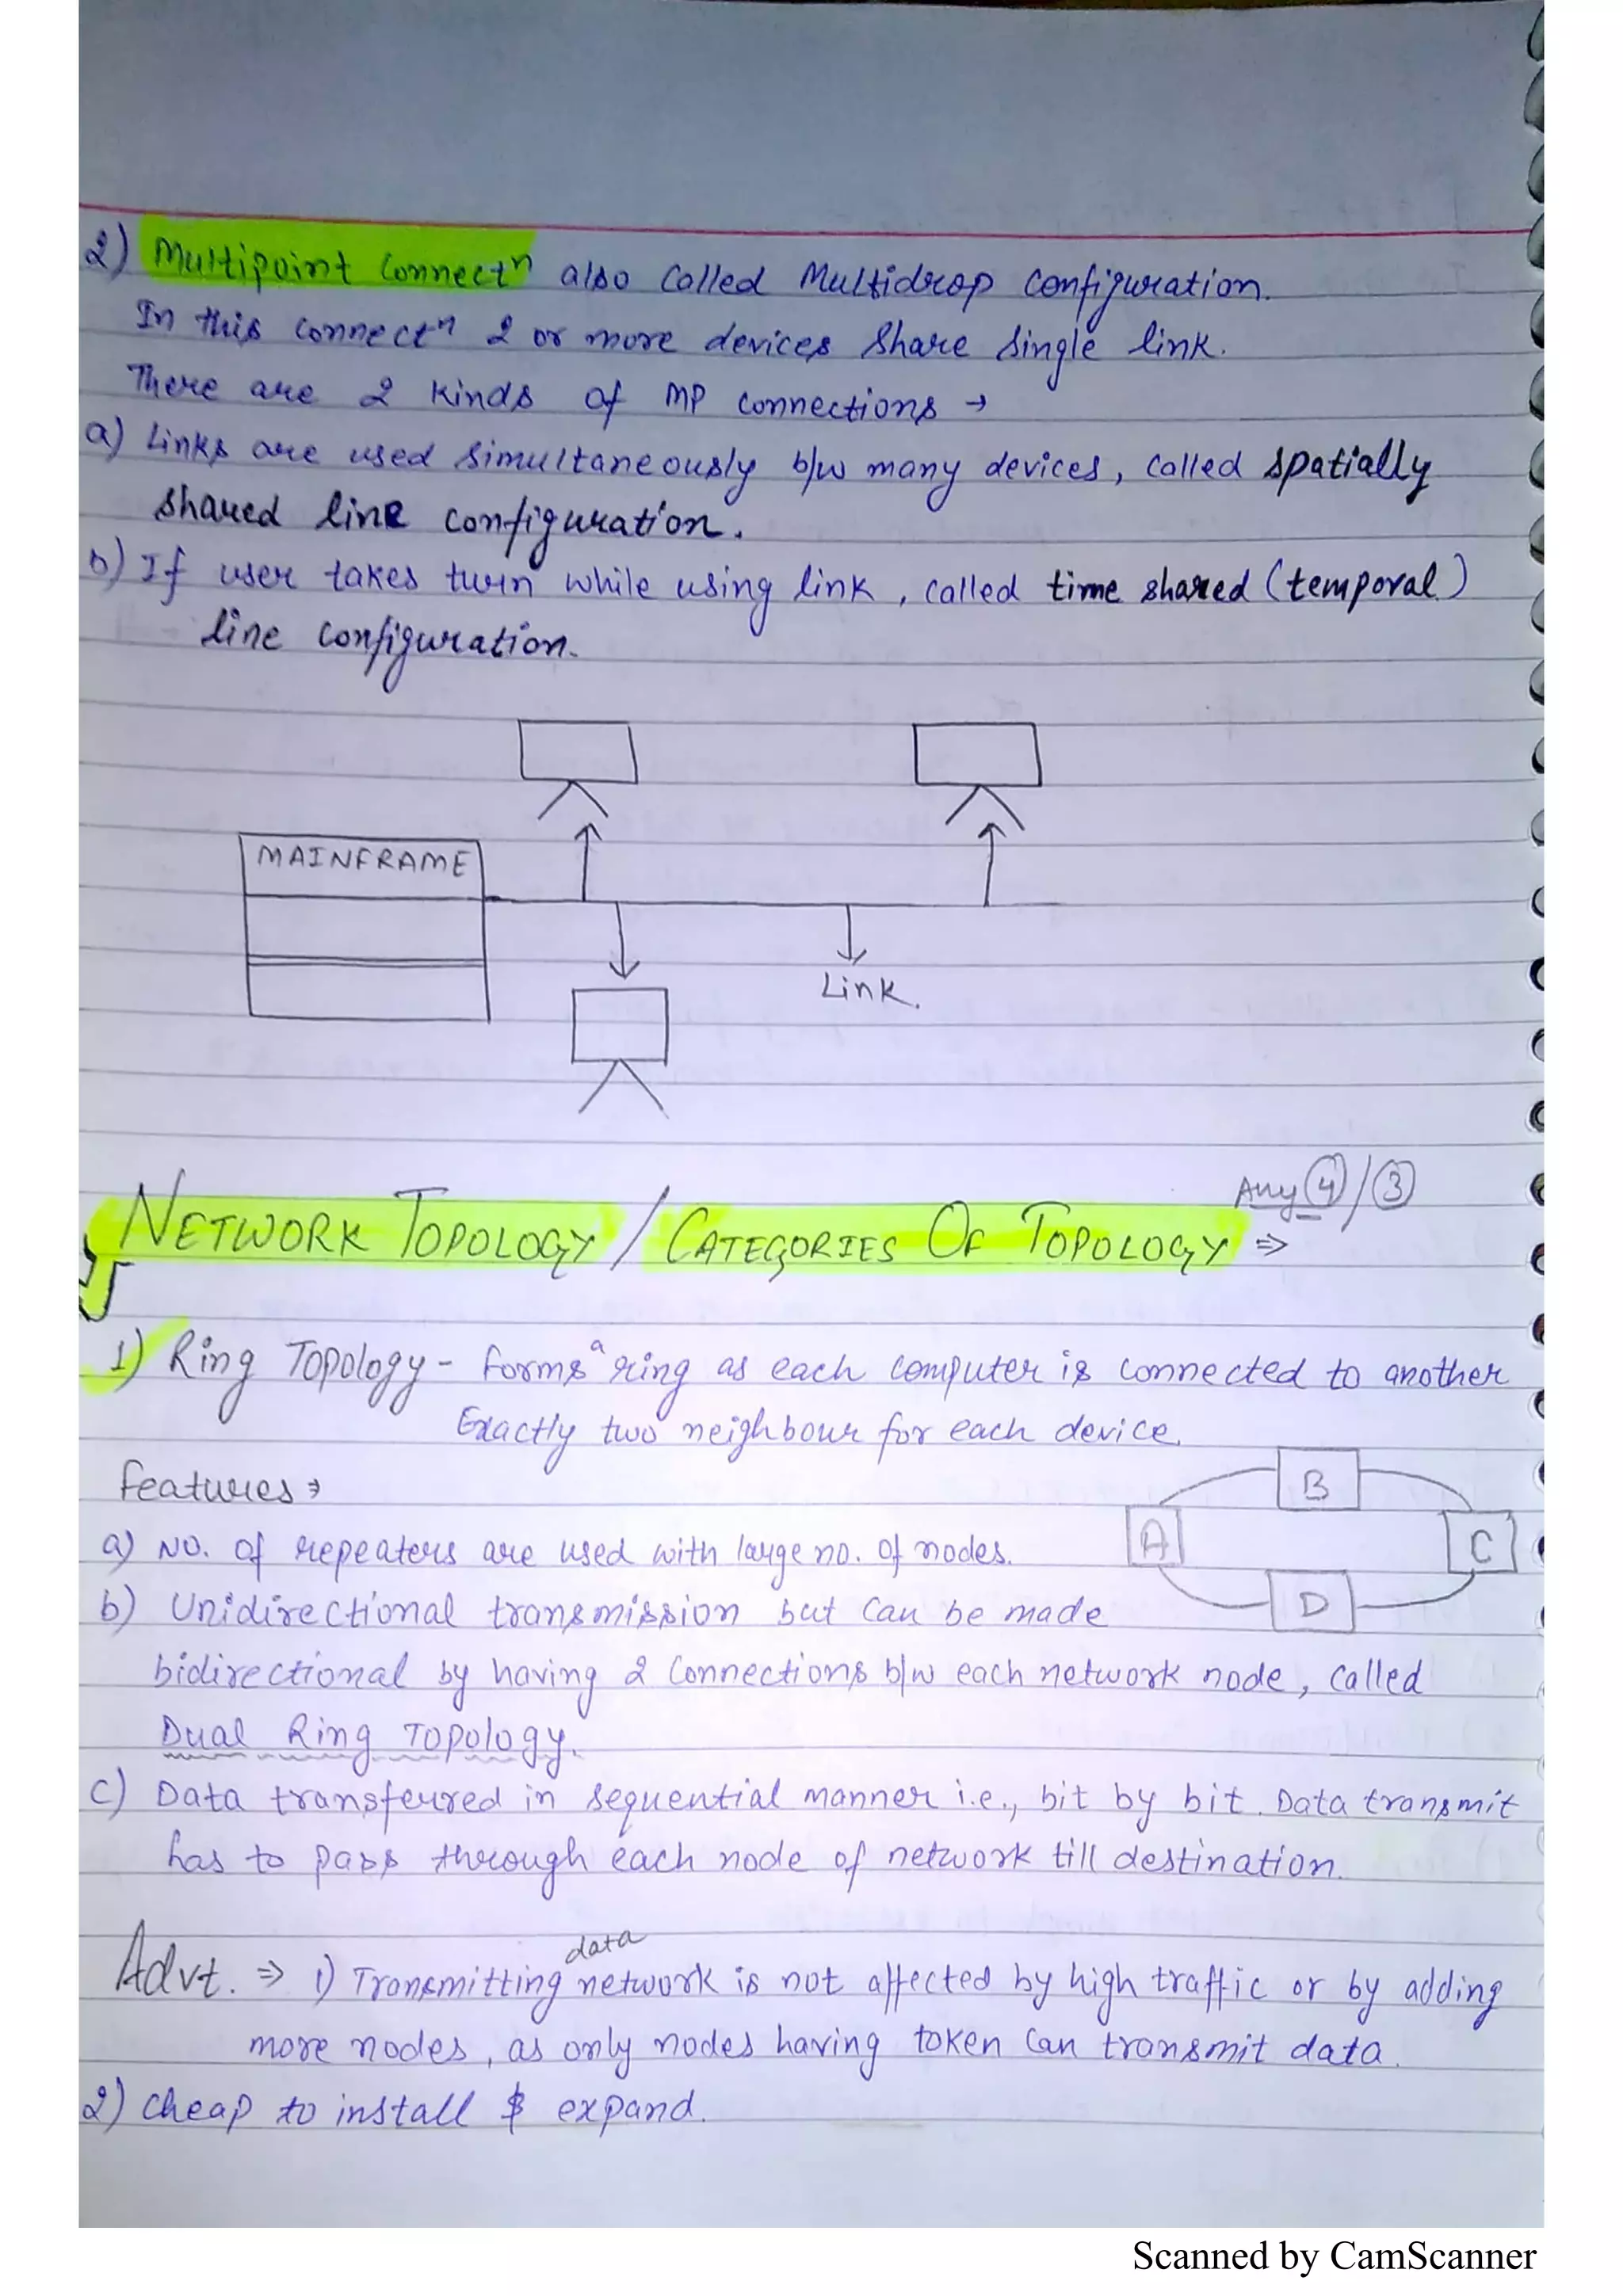 2) Multipoint Connectⁿ also Called Multidrop Configuration.
In this connectⁿ 2 or more devices Share Single link.
There are 2 kinds of MP connections →
a) Links are used simultaneously b/w many devices, called spatially
shared line configuration.
b) If user takes turn while using link, called time shared (temporal)
line configuration.
MAINFRAME
Link.
Any ④/③
NETWORK TOPOLOGY / CATEGORIES OF TOPOLOGY ⇒
1) Ring Topology - Forms a ring as each computer is connected to another
Exactly two neighbour for each device.
Features →
B
A
C
a) NO. of repeaters are used with large no. of nodes.
D
b) Unidirectional transmission but can be made
bidirectional by having 2 Connections b/w each network node, called
Dual Ring Topology.
c) Data transferred in sequential manner i.e., bit by bit. Data transmit
has to pass through each node of network till destination.
Advt. ⇒ 1) Transmitting data network is not affected by high traffic or by adding
more nodes, as only nodes having token can transmit data.
2) Cheap to install & expand.
Scanned by CamScanner